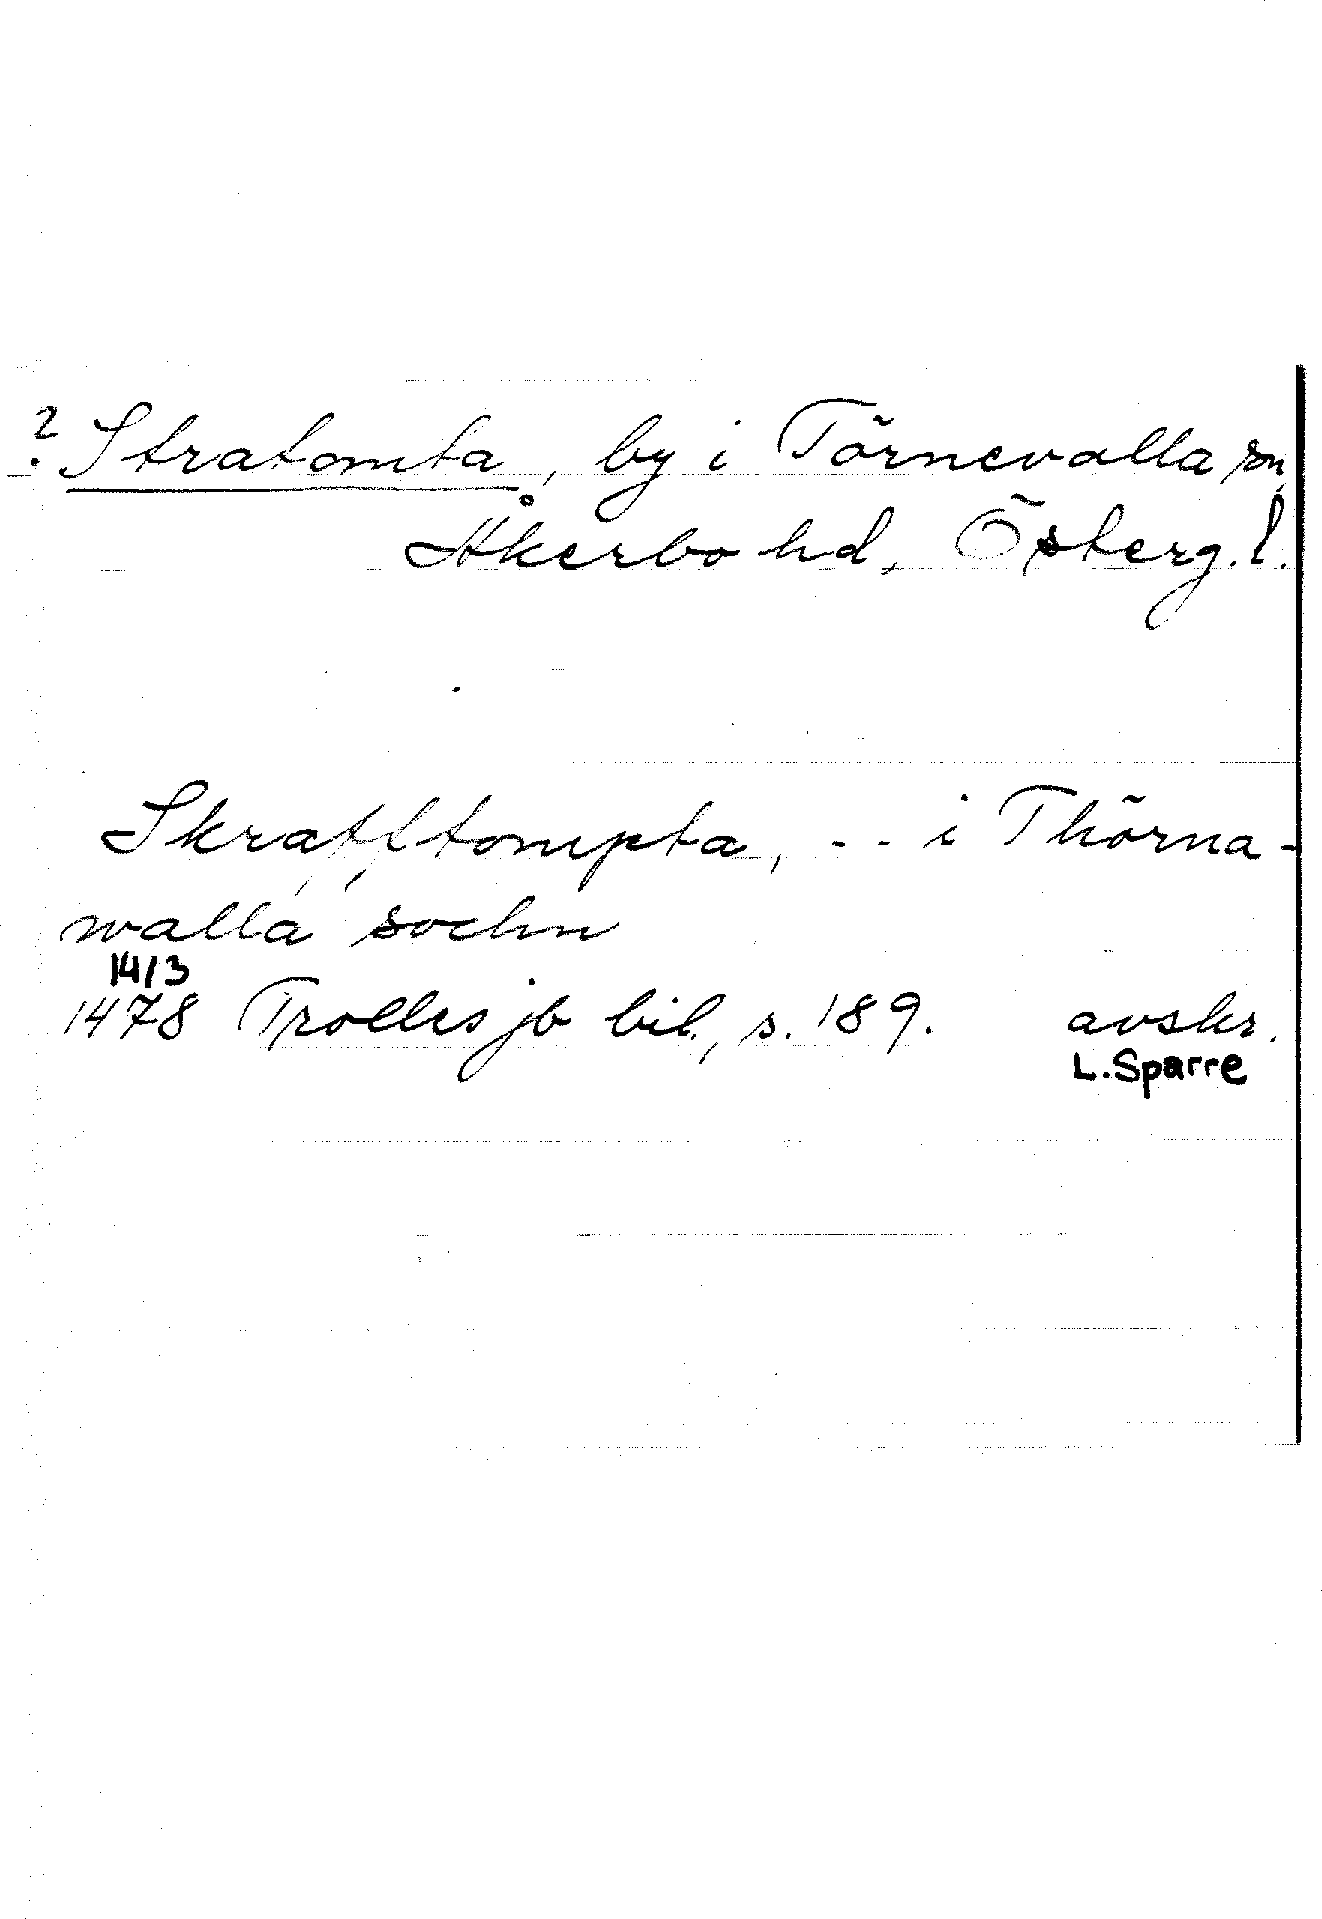 ? Stratomta, by i Törnevalla sn,
Åkerbo hd, Österg. l.
Skrafftompta, -- i Thörna-
walla sochn
14/3
1478 Trolles jb bil., s. 189. avskr.
L. Sparre